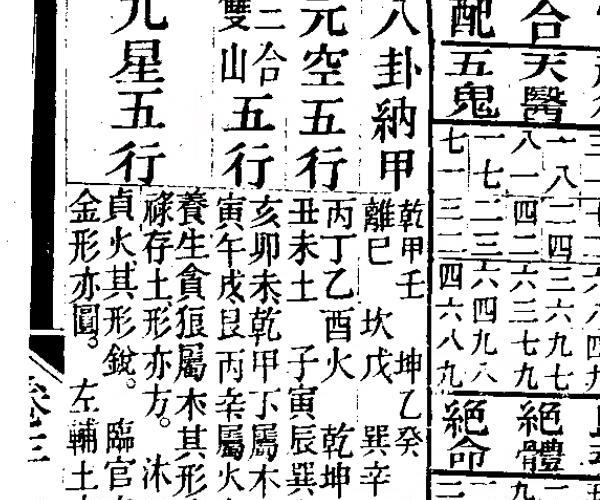 合
天醫
八一四二
六三七九
絕體
一八二四
三六九七
配
五鬼
七一三二
四六八九
一七二三
六四九八
絕命
八卦納甲
乾甲壬 坤乙癸
離巳 坎戊 巽辛
元空五行
丙丁乙酉火 乾坤
丑未土 子寅辰巽
三合
雙山五行
亥卯未乾甲丁屬木
寅午戌艮丙辛屬火
九星五行
養生貪狼屬木其形
祿存土形亦方。沐
貞火其形銳。臨官
金形亦圓。左輔土
卷三